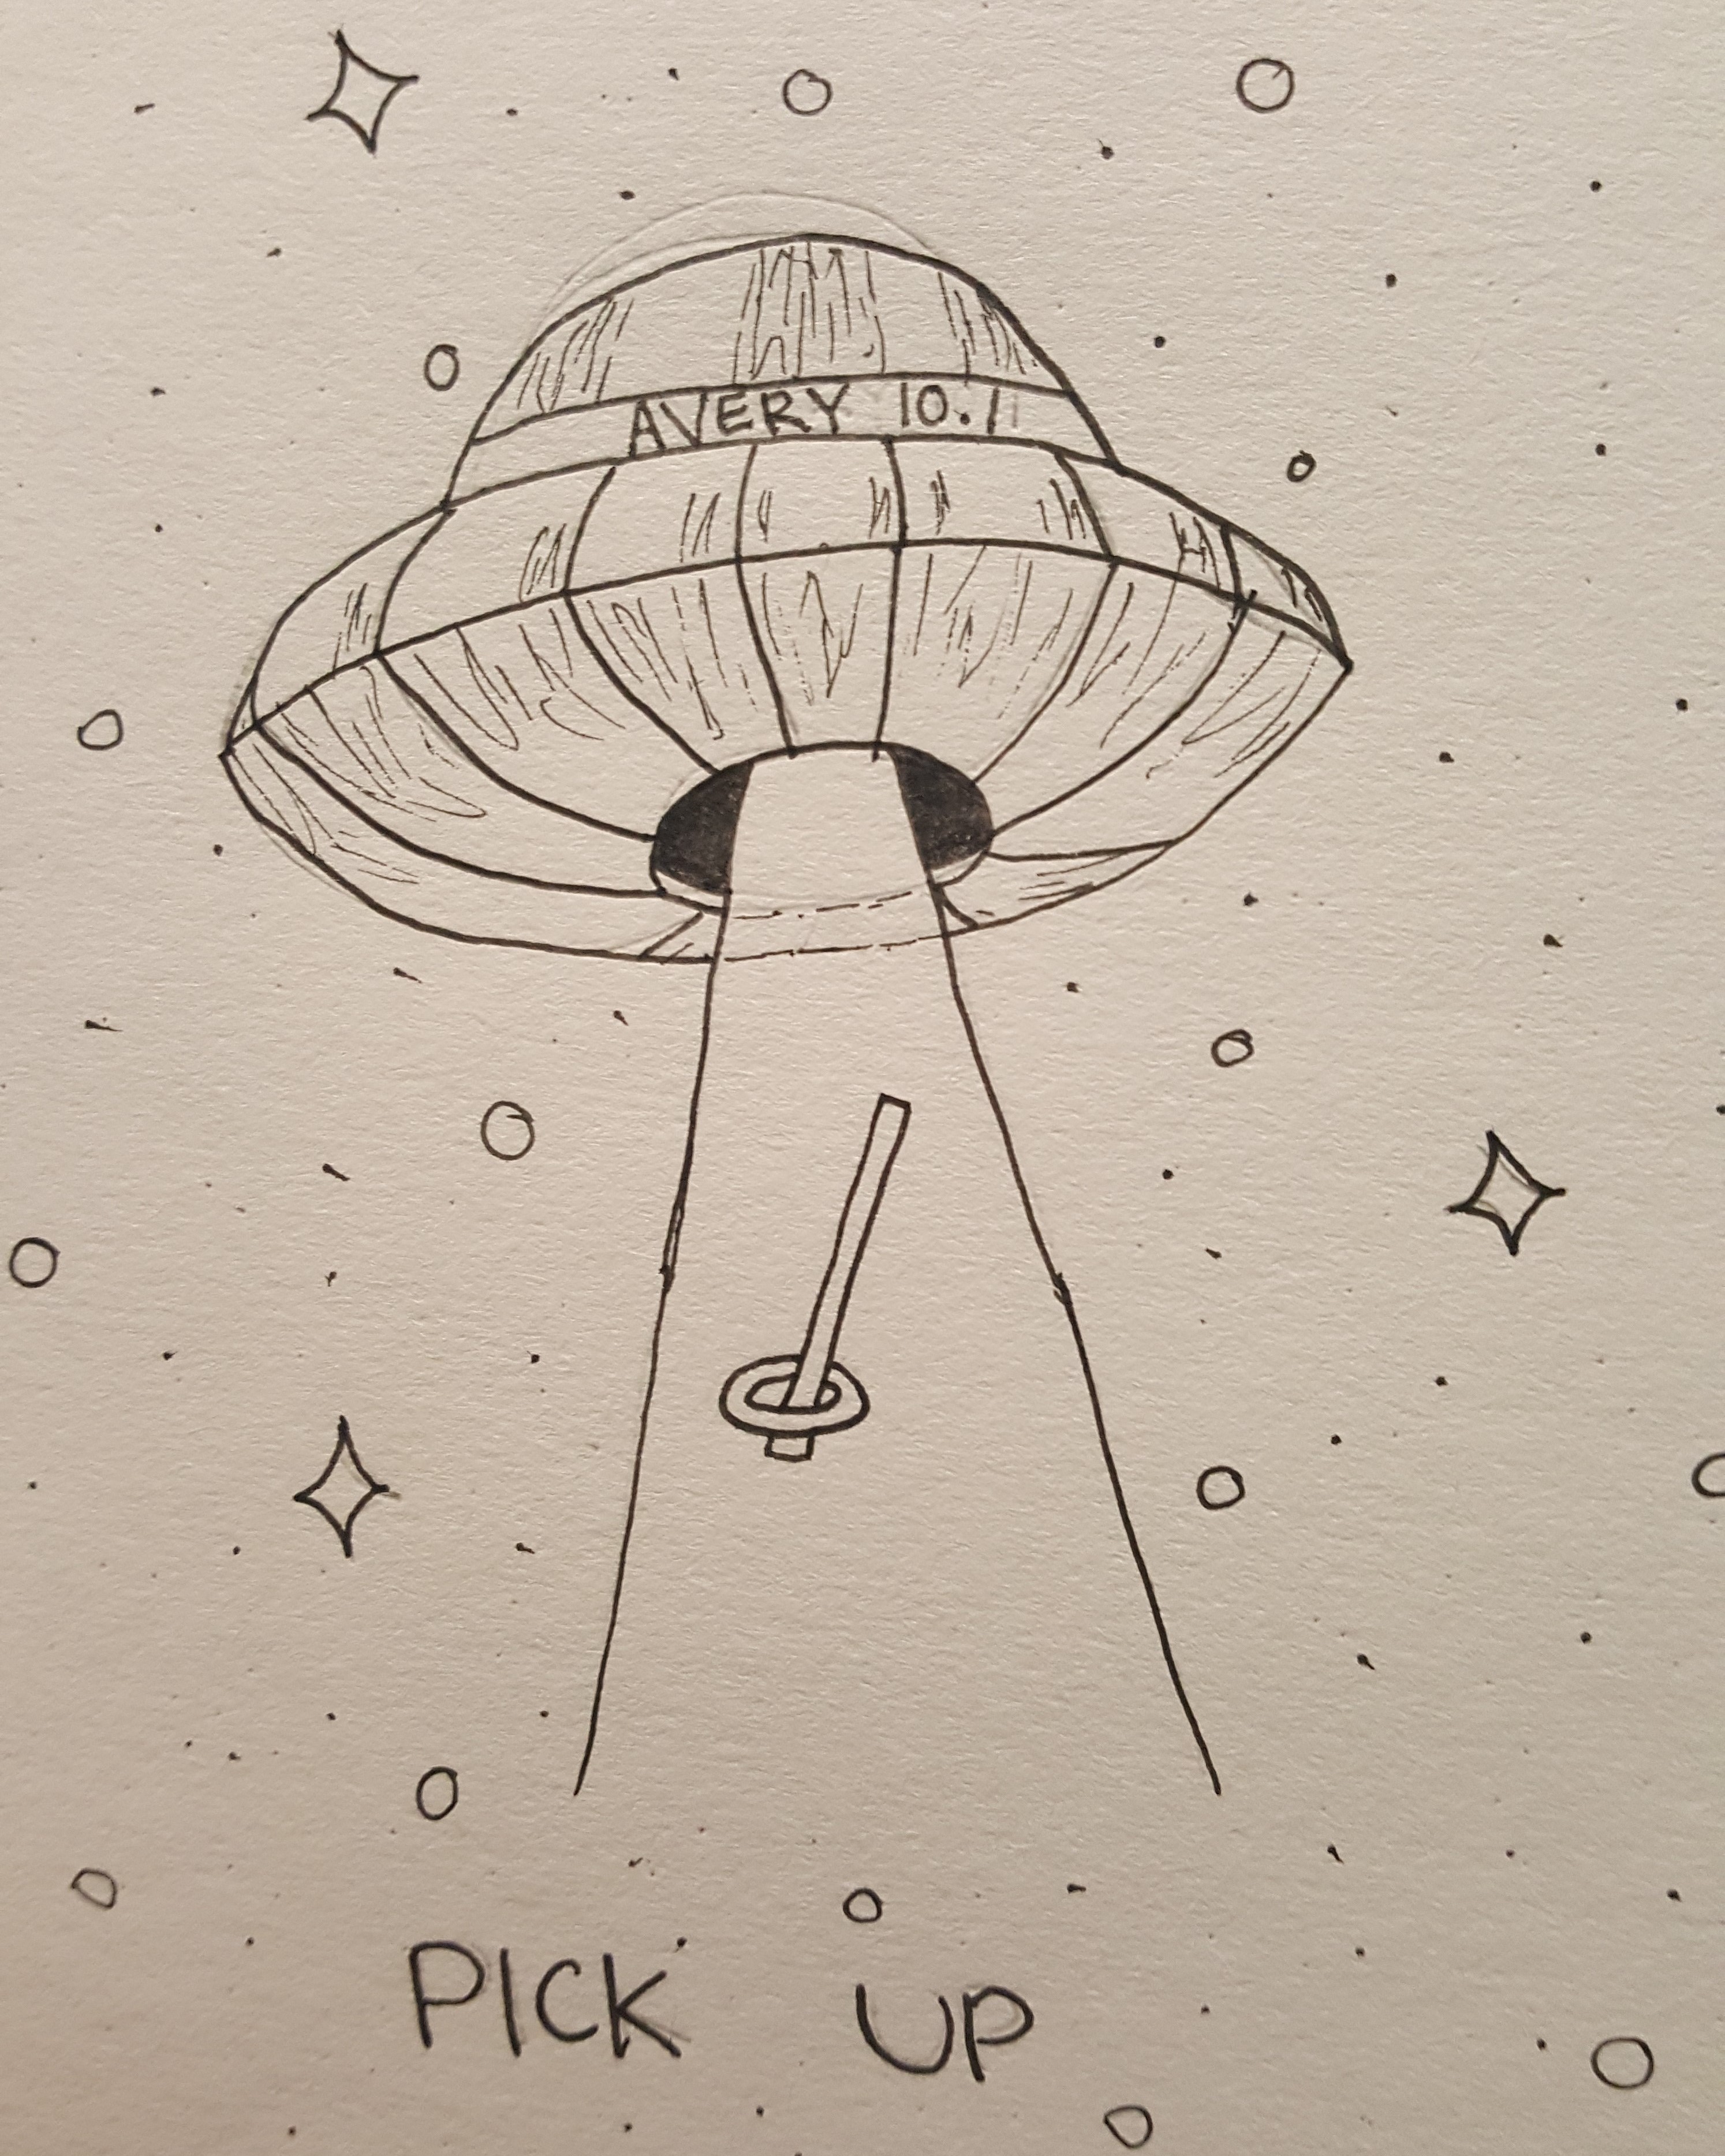 AVERY 10.1
PICK UP